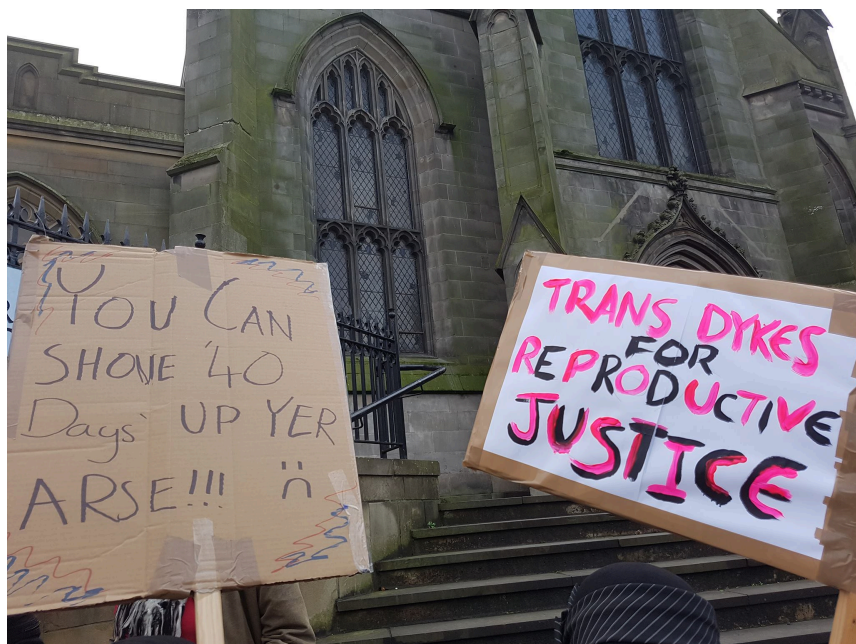 YOU CAN
SHOVE '40
Days' UP YER
ARSE!!! :(
TRANS DYKES
FOR
REPRODUCTIVE
JUSTICE